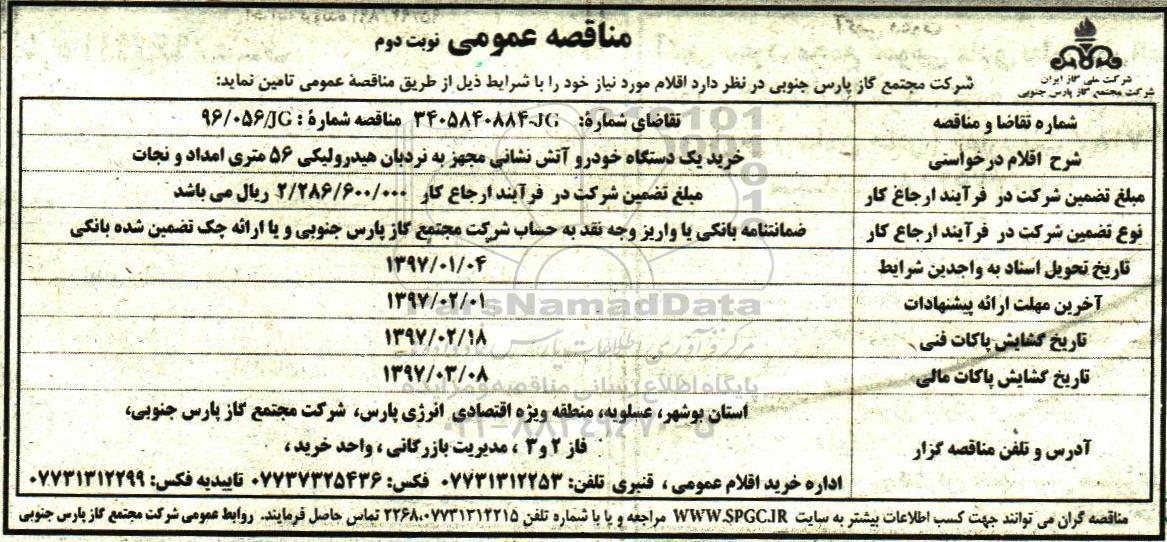 مناقصه عمومی نوبت دوم
شرکت ملی گاز ایران
شرکت مجتمع گاز پارس جنوبی
شرکت مجتمع گاز پارس جنوبی در نظر دارد اقلام مورد نیاز خود را با شرایط ذیل از طریق مناقصهٔ عمومی تامین نماید:
شماره تقاضا و مناقصه تقاضای شمارهٔ: ۳۴۰۵۸۴۰۸۸۴-JG مناقصه شمارهٔ : ۹۶/۰۵۶/JG
شرح اقلام درخواستی خرید یک دستگاه خودرو آتش نشانی مجهز به نردبان هیدرولیکی ۵۶ متری امداد و نجات
مبلغ تضمین شرکت در فرآیند ارجاع کار مبلغ تضمین شرکت در فرآیند ارجاع کار ۲/۲۸۶/۶۰۰/۰۰۰ ریال می باشد
نوع تضمین شرکت در فرآیند ارجاع کار ضمانتنامه بانکی یا واریز وجه نقد به حساب شرکت مجتمع گاز پارس جنوبی و یا ارائه چک تضمین شده بانکی
تاریخ تحویل اسناد به واجدین شرایط ۱۳۹۷/۰۱/۰۴
آخرین مهلت ارائه پیشنهادات ۱۳۹۷/۰۲/۰۱
تاریخ گشایش پاکات فنی ۱۳۹۷/۰۲/۱۸
تاریخ گشایش پاکات مالی ۱۳۹۷/۰۳/۰۸
آدرس و تلفن مناقصه گزار استان بوشهر، عسلویه، منطقه ویژه اقتصادی انرژی پارس، شرکت مجتمع گاز پارس جنوبی،
فاز ۲ و ۳ ، مدیریت بازرگانی ، واحد خرید ،
اداره خرید اقلام عمومی ، قنبری تلفن: ۰۷۷۳۱۳۱۲۲۵۳ فکس: ۰۷۷۳۷۳۲۵۴۳۶ تاییدیه فکس: ۰۷۷۳۱۳۱۲۲۹۹
مناقصه گران می توانند جهت کسب اطلاعات بیشتر به سایت WWW.SPGC.IR مراجعه و یا با شماره تلفن ۲۲۶۸،۰۷۷۳۱۳۱۲۲۱۵ تماس حاصل فرمایند. روابط عمومی شرکت مجتمع گاز پارس جنوبی
ParsNamadData
مرکز فرآوری اطلاعات پارس نماد داده ها
پایگاه اطلاع رسانی مناقصه و مزایده